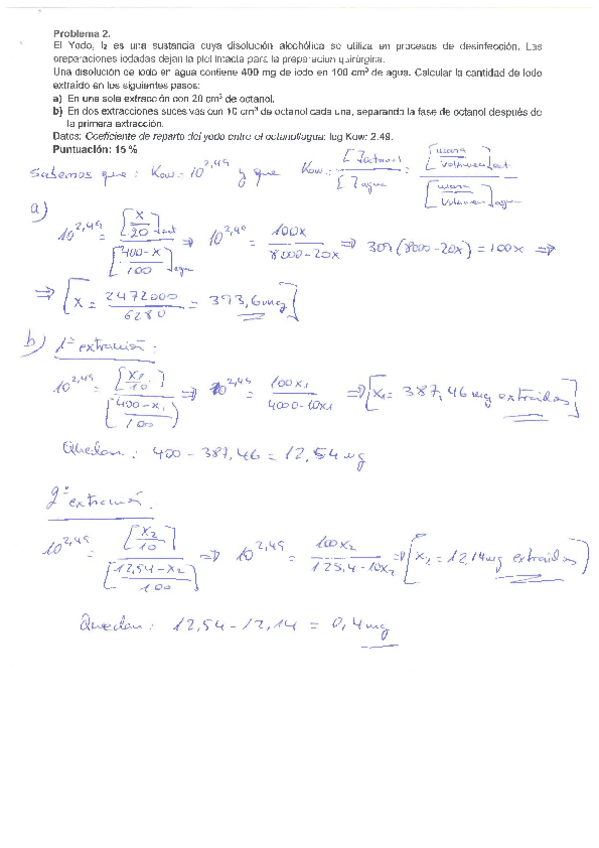 Problema 2.
El Yodo, I₂ es una sustancia cuya disolución alcohólica se utiliza en procesos de desinfección. Las
preparaciones iodadas dejan la piel intacta para la preparación quirúrgica.
Una disolución de iodo en agua contiene 400 mg de iodo en 100 cm³ de agua. Calcular la cantidad de Iodo
extraído en los siguientes pasos:
a) En una sola extracción con 20 cm³ de octanol.
b) En dos extracciones sucesivas con 10 cm³ de octanol cada una, separando la fase de octanol después de
la primera extracción.
Datos: Coeficiente de reparto del yodo entre el octanol/agua: log Kow: 2.49.
Puntuación: 15 %
Sabemos que: Kow = 10^2,49 y que Kow = [ ]octanol / [ ]agua = [masa/volumen]oct / [masa/volumen]agua
a)
10^2,49 = [x/20]oct / [400-x/100]agua ⇒ 10^2,49 = 100x / 8000-20x ⇒ 309 (8000-20x) = 100x ⇒
⇒ [x = 2472000 / 6280 = 393,6 mg]
b) 1ª extracción:
10^2,49 = [x₁/10] / [400-x₁/100] ⇒ 10^2,49 = 100x₁ / 4000-10x₁ ⇒ [x₁ = 387,46 mg extraidos]
Quedan: 400 - 387,46 = 12,54 mg
2ª extracción:
10^2,49 = [x₂/10] / [12,54-x₂/100] ⇒ 10^2,49 = 100x₂ / 125,4-10x₂ ⇒ [x₂ = 12,14 mg extraidos]
Quedan: 12,54 - 12,14 = 0,4 mg